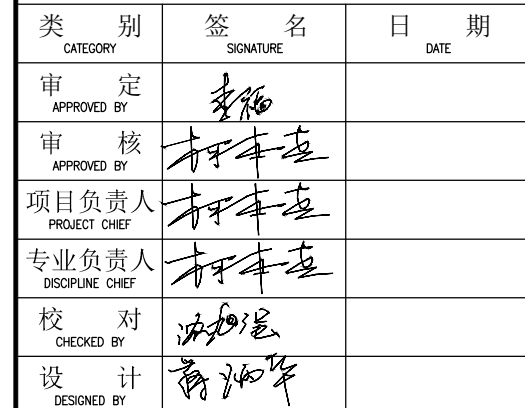 类 别 签 名 日 期
CATEGORY SIGNATURE DATE
审 定
APPROVED BY
审 核
APPROVED BY
项目负责人
PROJECT CHIEF
专业负责人
DISCIPLINE CHIEF
校 对
CHECKED BY
设 计
DESIGNED BY